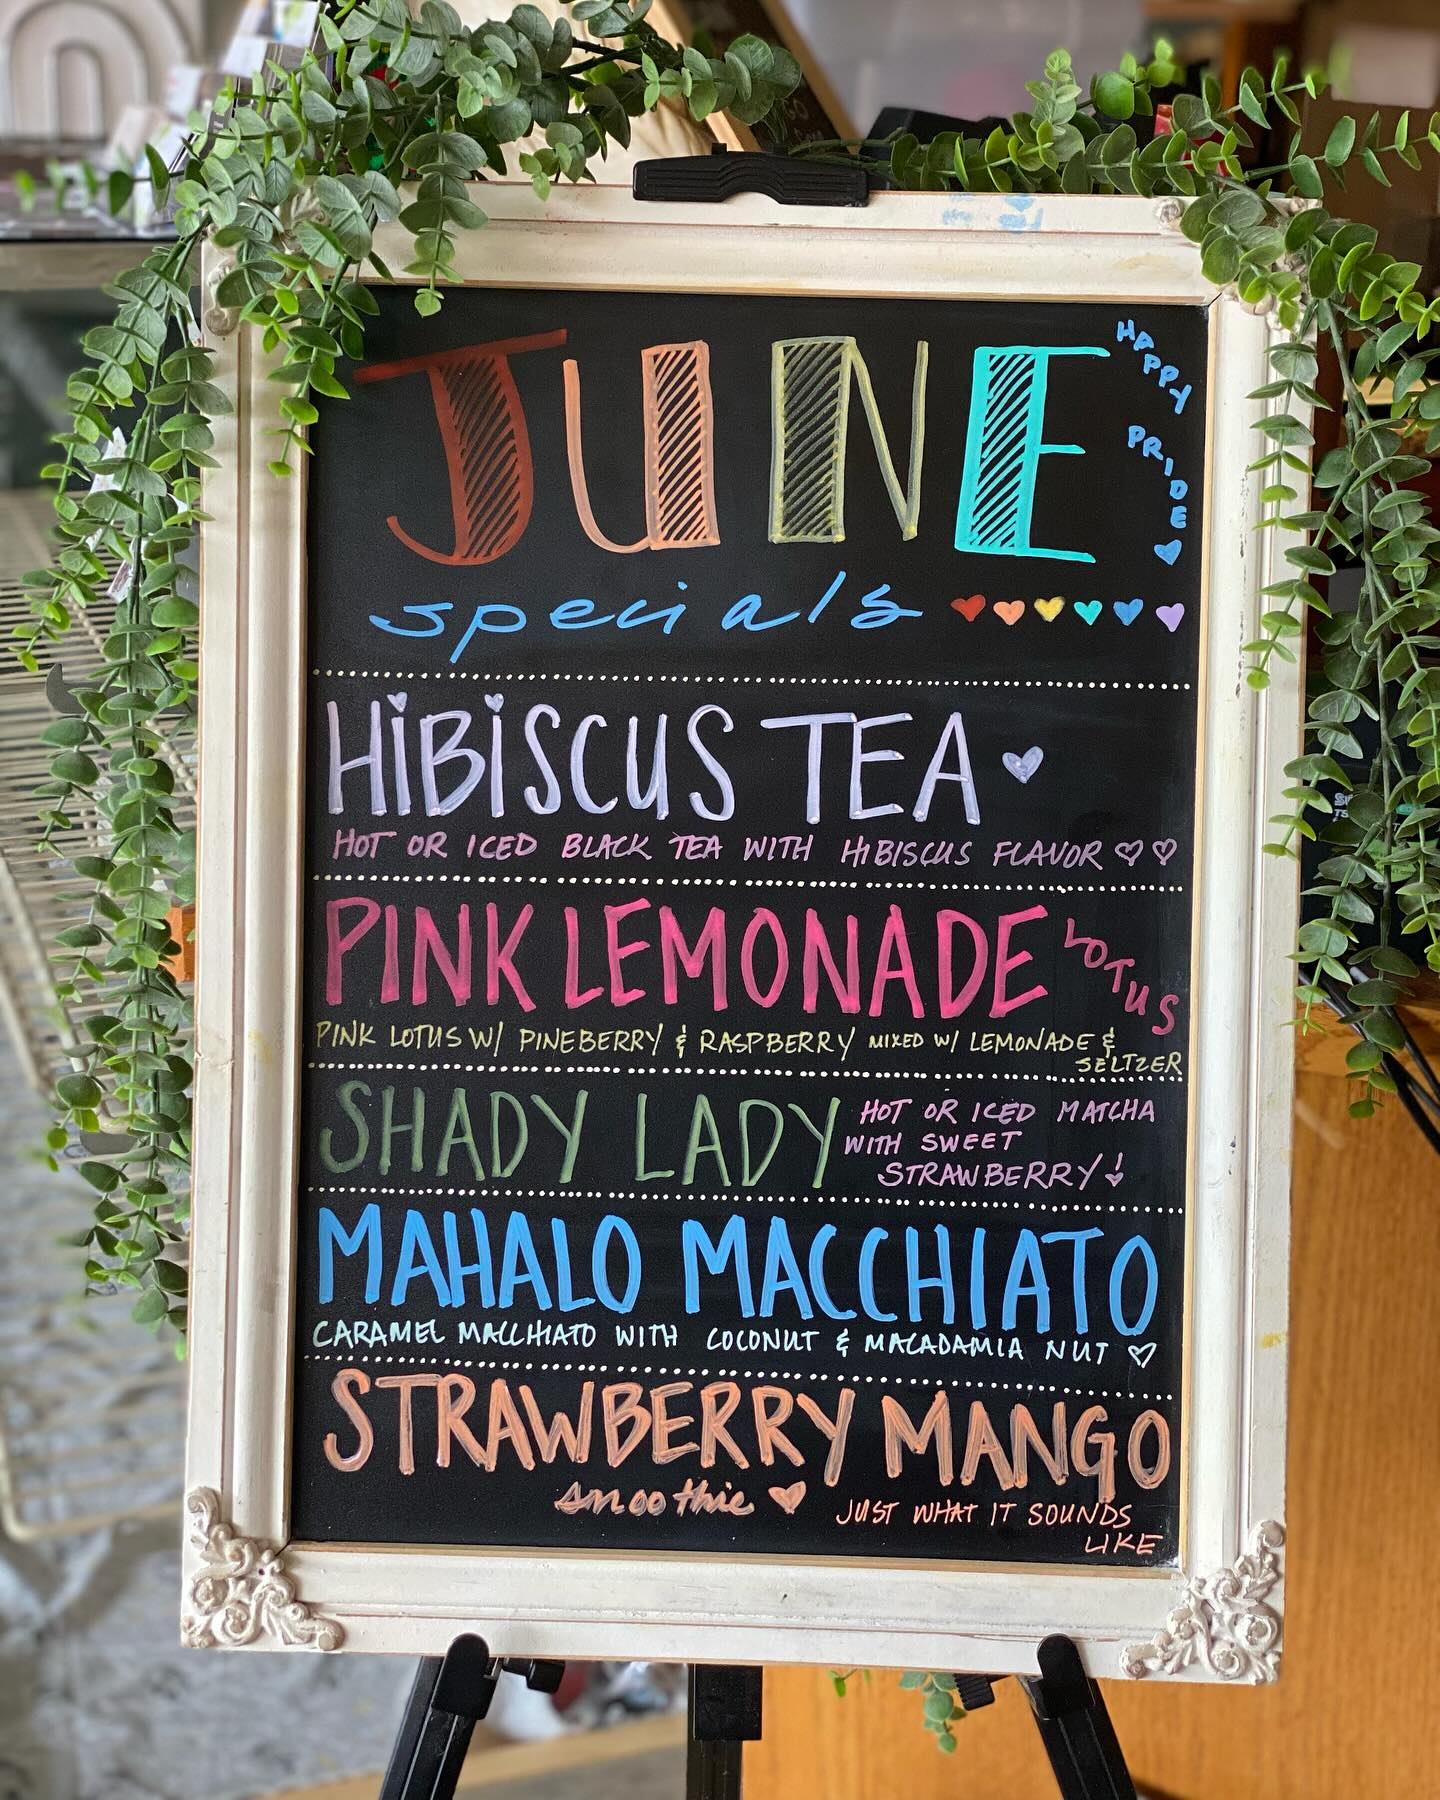 JUNE
HAPPY PRIDE
specials
HiBiSCUS TEA
HOT OR ICED BLACK TEA WITH HIBISCUS FLAVOR
PINK LEMONADE LOTUS
PINK LOTUS W/ PINEBERRY & RASPBERRY MIXED W/ LEMONADE &
SELTZER
SHADY LADY
HOT OR ICED MATCHA
WITH SWEET
STRAWBERRY!
MAHALO MACCHIATO
CARAMEL MACCHIATO WITH COCONUT & MACADAMIA NUT
STRAWBERRY MANGO
smoothie
JUST WHAT IT SOUNDS
LIKE